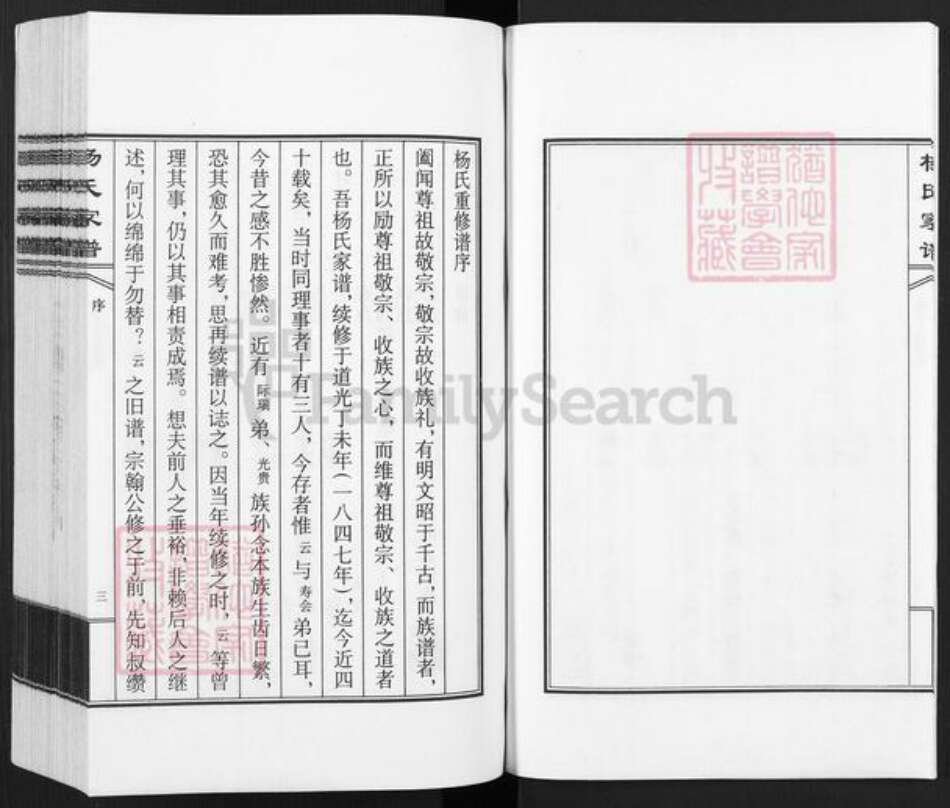 杨氏重修谱序
阖闻尊祖故敬宗，敬宗故收族礼，有明文昭于千古，而族谱者，
正所以励尊祖敬宗、收族之心，而维尊祖敬宗、收族之道者
也。吾杨氏家谱，续修于道光丁未年（一八四七年），迄今近四
十载矣，当时同理事者十有三人，今存者惟云与寿会弟已耳，
今昔之感不胜惨然。近有际瑞弟、光贵族孙念本族生齿日繁，
恐其愈久而难考，思再续谱以志之。因当年续修之时，云等曾
理其事，仍以其事相责成焉。想夫前人之垂裕，非赖后人之继
述，何以绵绵于勿替？云之旧谱，宗翰公修之于前，先知叔缵
杨氏家谱
序
三
杨氏家谱
犹他家
谱学会
收藏
犹他家
谱学会
收藏
FamilySearch